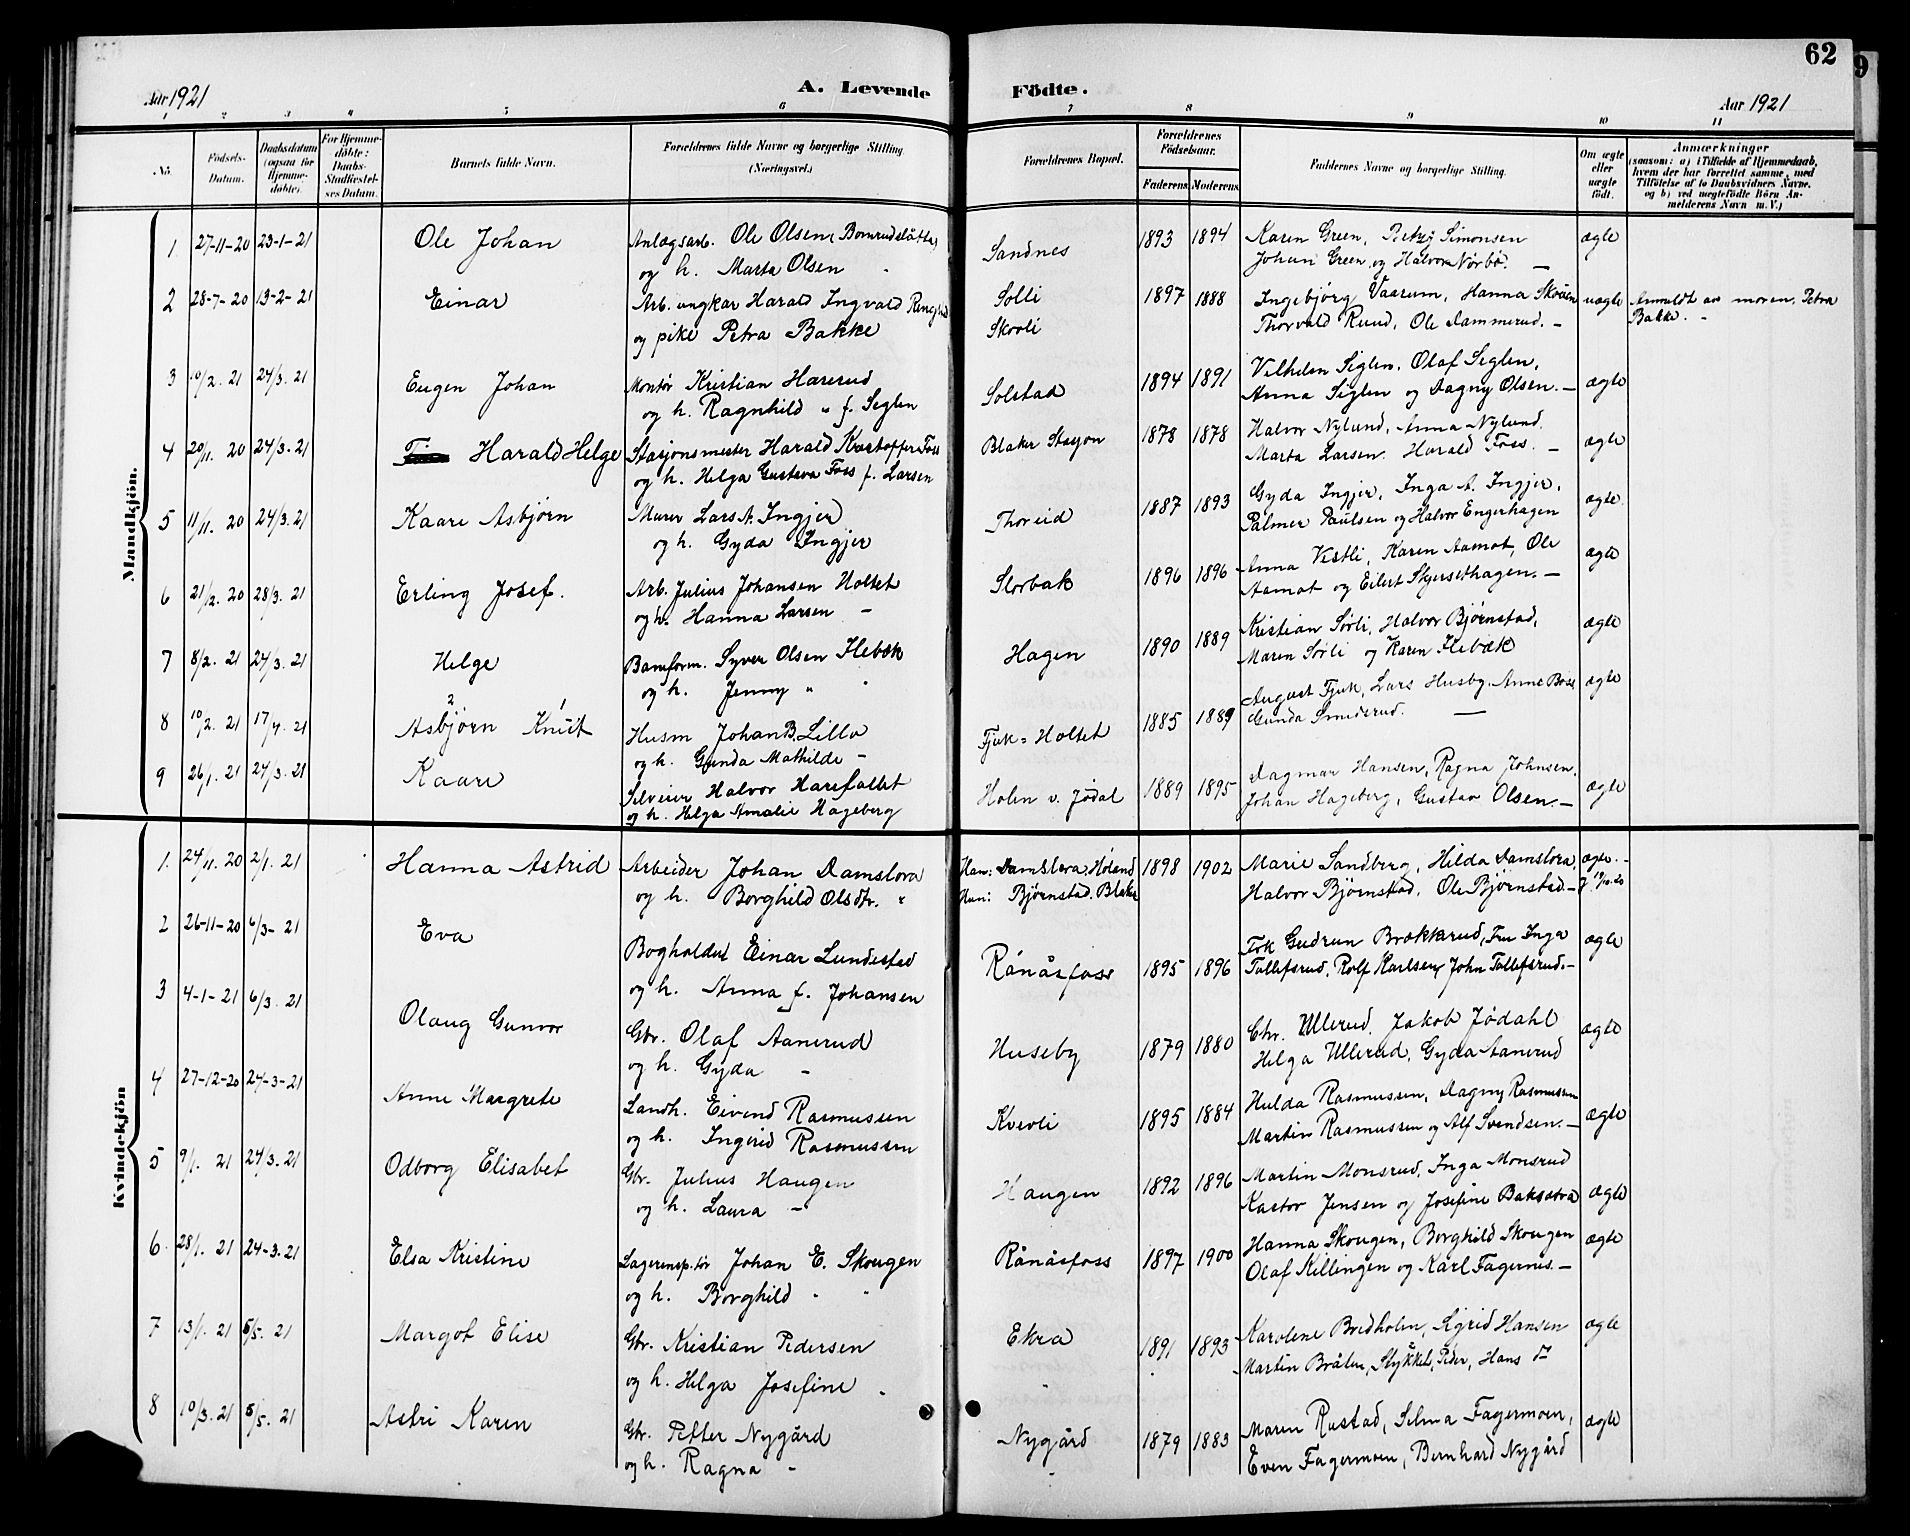 62
9
Aar 1921
A. Levende
Födte.
Aar 1921
1 2 3 4 5 6 7 8 9 10 11
No.
Födsels-
Datum.
Daabsdatum
(ogsaa for
Hjemme-
döbte).
For Hjemme-
döbte:
Daabs-
Stadfæstel-
ses Datum.
Barnets fulde Navn.
Forældrenes fulde Navne og borgerlige Stilling
(Næringsvei.)
Forældrenes Bopæl.
Forældrenes
Födselsaar.
Faderens.
Moderens.
Faddernes Navne og borgerlige Stilling.
Om ægte
eller
uægte
født.
Anmærkninger
(saasom: a) i Tilfælde af Hjemmedaab,
hvem der har forrettet samme, med
Tilføielse af to Daabsvidners Navne,
og b) ved uægtefödte Börn An-
melderens Navn m. V.)
Mandkjön.
1 27-11-20 23-1-21 Ole Johan Anlægsarb. Ole Olsen (Bomrudslåtta) Sandnes 1893 1894 Karen Green, Simonsen ægte
og h. Marta Olsen Johan Green og Halvor Nørbø. —
2 28-7-20 13-2-21 Einar Arb. ungkar Harald Ingvald Solli 1897 1888 Ingebjörg Vaarum, Hanna Skoien uægte Anmeldt av moren, Petra
og pike Petra Bakke Skovli Thorvald Ruud, Ole Dammerud. — Bakke.
3 10/2. 21 24/3. 21 Eugen Johan Montør Kristian Harerud Solstad 1894 1891 Vilhelm Seglen, Olaf Seglen, ægte
og h. Ragnhild " f. Seglen Anna Seglen og Dagny Olsen. —
4 20/11. 20 24/3. 21 Harald Helge Stasjonsmester Harald Kristoffer Foss Blaker Stasjon 1878 1878 Halvor Nylund, Anna Nylund. ægte
og h. Helga Gustava Foss f. Larsen Marta Larsen. Harald Foss. —
5 11/11. 20 24/3. 21 Kaare Asbjørn Murer Lars A. Ingjer Thoreid 1887 1893 Gyda Ingjer, Inga A. Ingjer, ægte
og h. Gyda Ingjer Palmer Paulsen og Halvor Engerhagen
6 21/2. 20 28/3. 21 Erling Josef. Arb. Julius Johansen Holtet Storbak 1896 1896 Anna Vestli, Karen Aamot, Ole ægte
og h. Hanna Larsen — Aamot og Eilert Skjersethagen. —
7 8/2. 21 24/3. 21 Helge Banform. Syver Olsen Hebæk Hagen 1890 1889 Kristian Sørli, Halvor Bjørnstad, ægte
og h. Jenny " Maren Sørli og Karen Hebæk
8 10/2. 21 17/4. 21 Asbjørn Knut Husm Johan B. Lillo Fjuk-Holtet 1885 1889 August Fjuk, Lars Husby, Anne ægte
2 1 og h. Gunda Mathilde — Gunda Smederud. —
9 26/1. 21 24/3. 21 Kaare Halvor Harefallet Holen v. Jødal 1889 1895 Dagmar Hansen, Ragna Johnsen. ægte
og h. Helga Amalie Hageberg Johan Hageberg, Gustav Olsen. —
Kvindekjön
1. 24/11. 20 2/1. 21 Hanna Astrid Arbeider Johan Damslora Han: Damslora, Høland 1898 1902 Marie Sandberg, Hilda Damslora, ægte. —
og h. Borghild Olsdtr. " Hun: Bjørnstad. Blaker Halvor Bjørnstad, Ole Bjørnstad. —
2 26-11-20 6/3-21 Eva Bogholder Einar Lundestad Rånåsfoss 1895 1896 Frk Gudrun Brækkerud, Fru Inga ægte
og h. Anna f. Johansen Tollefsrud, Rolf Karlsen, John Tollefsrud. —
3 4-1-21 6/3. 21 Olaug Gunvor Gbr. Olaf Aanerud Huseby 1879 1880 Chr. Ullerud, Jakob Jødahl ægte
og h. Gyda — Helga Ullerud, Gyda Aanerud
4 27-12-20 24-3-21 Anne Margrete Landh. Eivind Rasmussen Kvevli 1895 1884 Hulda Rasmussen, Dagny Rasmussen ægte
og h. Ingerid Rasmussen Martin Rasmussen og Alf Svendsen. —
5 9/1. 21 24/3. 21 Odborg Elisabet Gbr. Julius Haugen Haugen 1892 1896 Martin Monsrud, Inga Monsrud ægte
og h. Laura — Kastor Jensen og Josefine Baksætra
6. 28/1. 21 24-3.21 Elsa Kristine Lagerinsp.tør Johan E. Skougen Rånåsfoss 1897 1900 Hanna Skougen, Borghild Skougen ægte
og h. Borghild " Olaf Killingen og Karl Fagernes. —
7 13/1. 21 5/5. 21 Margot Elise Gbr. Kristian Pedersen Ekra 1891 1893 Karolene Bredholen, Sigrid Hansen ægte
og h. Helga Josefine Martin Bråten, Peder, Hans
8 10/3. 21 5/5. 21 Astri Karen Gbr. Petter Nygård Nygård 1879 1883 Maren Rustad, Selma Fagermoen, ægte
og h. Ragna — Even Fagermoen, Bernhard Nygård